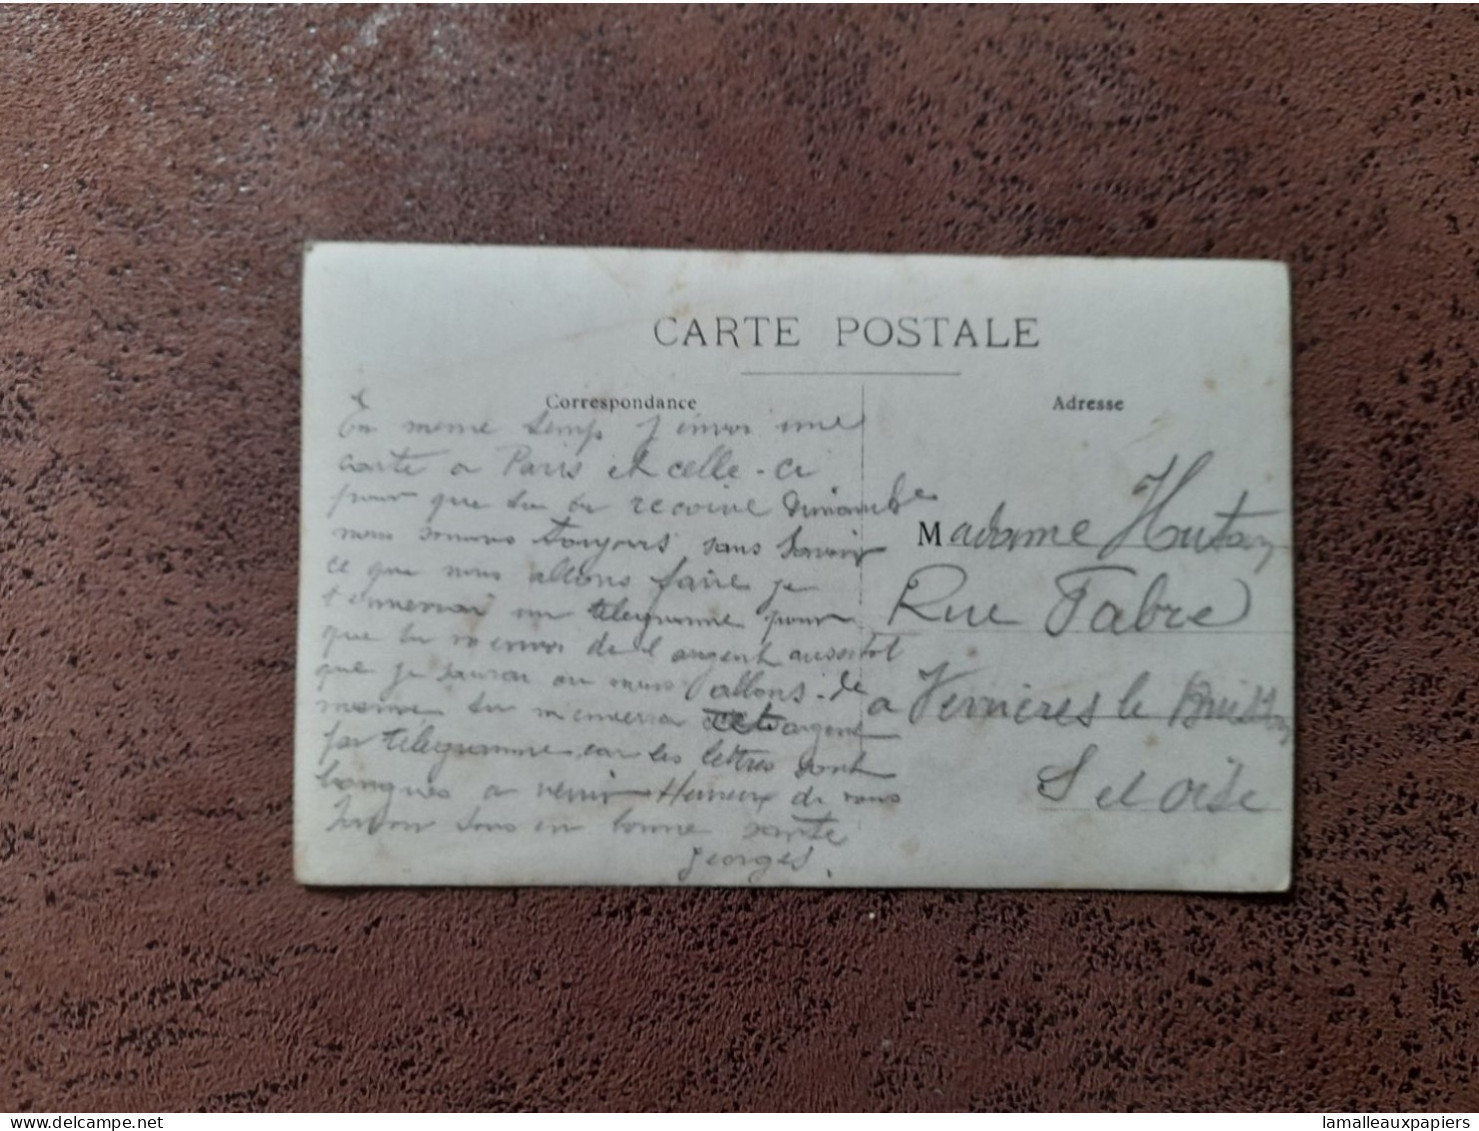 CARTE POSTALE
Correspondance
En meme temp j envoi une
carte a Paris et celle-ci
pour que tu la recoive dimanche
nous sommes toujours sans savoir
ce que nous allons faire je
t enverrai un télegramme pour
que tu m envoi de l argent aussitot
que je saurai ou nous allons. de
meme tu m enverra cet argent
par télégramme car les lettres sont
longues a venir Heureux de vous
savoir tous en bonne santé
Georges.
Adresse
Madame Hutan
Rue Fabre
a Verrieres le Buisson
S et Oise
lamalleauxpapiers
delcampe.net